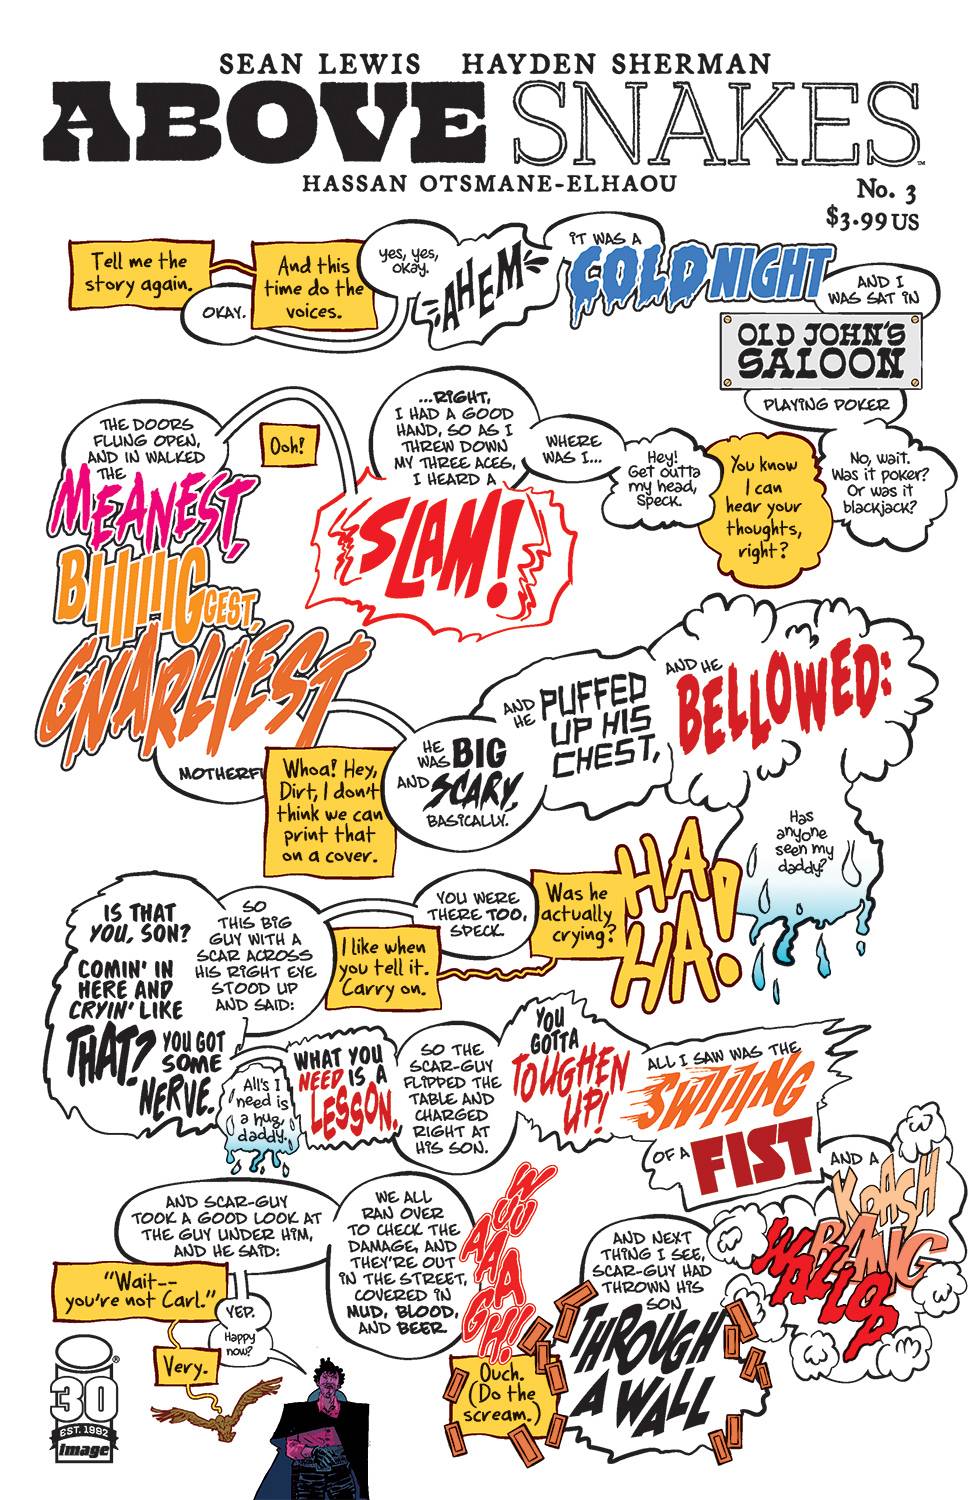 SEAN LEWIS HAYDEN SHERMAN
ABOVE SNAKES™
HASSAN OTSMANE-ELHAOU
No. 3
$3.99 US
Tell me the
story again.
OKAY.
And this
time do the
voices.
yes, yes,
okay.
AHEM
IT WAS A
COLD NIGHT
AND I
WAS SAT IN
OLD JOHN'S
SALOON
PLAYING POKER
No, wait.
Was it poker?
Or was it
blackjack?
You know
I can
hear your
thoughts,
right?
Hey!
Get outta
my head,
Speck.
WHERE
WAS I...
...RIGHT,
I HAD A GOOD
HAND, SO AS I
THREW DOWN
MY THREE ACES,
I HEARD A
SLAM!
Ooh!
THE DOORS
FLUNG OPEN,
AND IN WALKED
THE
MEANEST,
BIIIIIIIGGEST,
GNARLIEST
MOTHERFU
Whoa! Hey,
Dirt, I don't
think we can
print that
on a cover.
HE
WAS BIG
AND SCARY,
BASICALLY.
AND
HE PUFFED
UP HIS
CHEST,
AND HE
BELLOWED:
Has
anyone
seen my
daddy?
HA
HA!
Was he
actually
crying?
YOU WERE
THERE TOO,
SPECK.
I like when
you tell it.
Carry on.
SO
THIS BIG
GUY WITH A
SCAR ACROSS
HIS RIGHT EYE
STOOD UP
AND SAID:
IS THAT
YOU, SON?
COMIN' IN
HERE AND
CRYIN' LIKE
THAT? YOU GOT
SOME
NERVE.
All's I
need is
a hug
daddy.
WHAT YOU
NEED IS A
LESSON.
SO THE
SCAR-GUY
FLIPPED THE
TABLE AND
CHARGED
RIGHT AT
HIS SON.
YOU
GOTTA
TOUGHEN
UP!
ALL I SAW WAS THE
SWIIIING
OF A FIST
AND A
KRASH
BANG
WALLOP
AND NEXT
THING I SEE,
SCAR-GUY HAD
THROWN HIS
SON
THROUGH
A WALL
Ouch.
(Do the
scream.)
WUUUAAAAGH!!
WE ALL
RAN OVER
TO CHECK THE
DAMAGE, AND
THEY'RE OUT
IN THE STREET,
COVERED IN
MUD, BLOOD,
AND BEER.
AND SCAR-GUY
TOOK A GOOD LOOK AT
THE GUY UNDER HIM,
AND HE SAID:
"Wait--
you're not Carl."
YEP.
Happy
now?
Very.
i®
30
EST. 1992
image